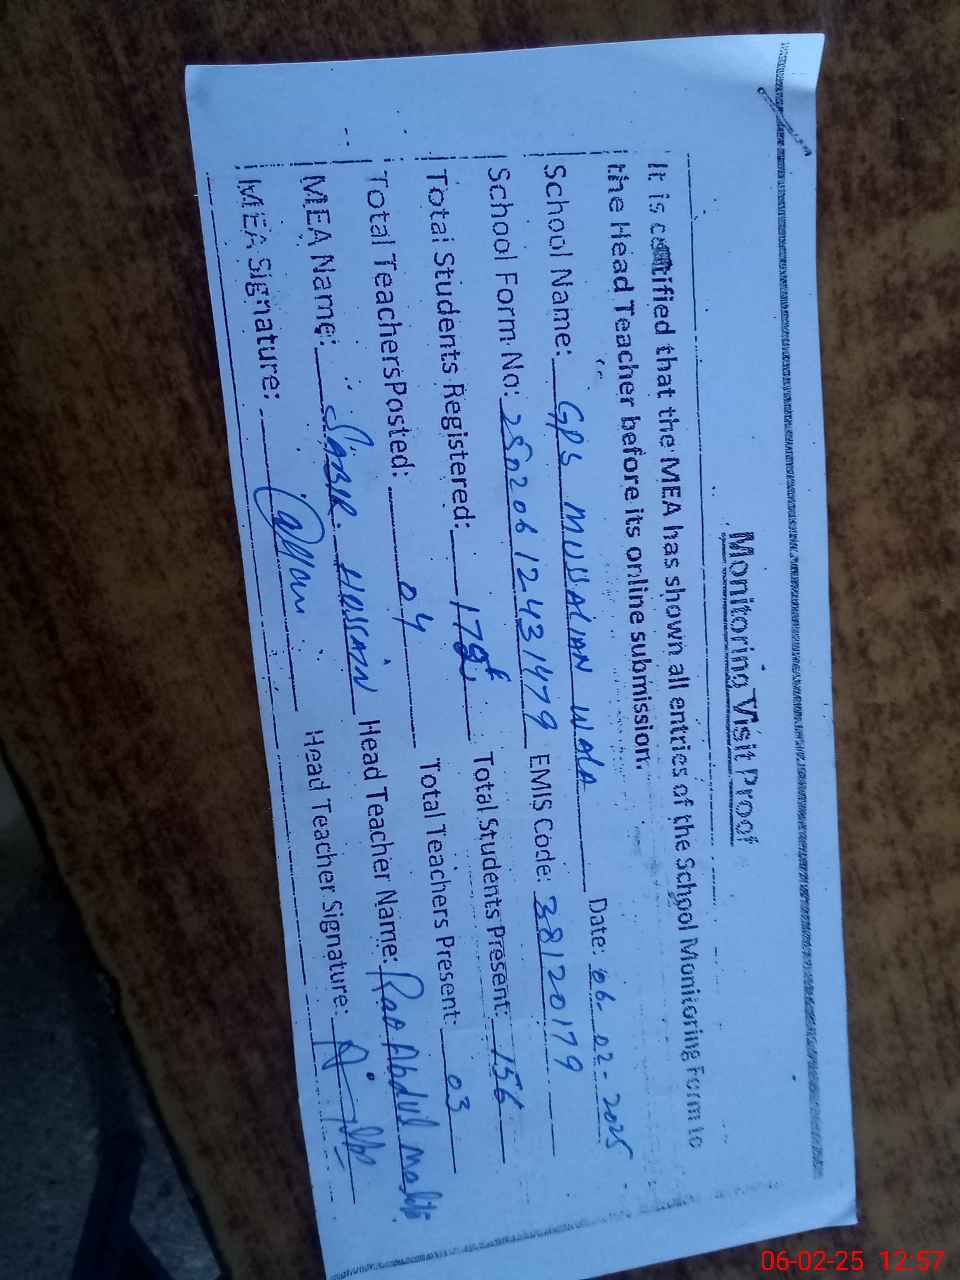 Monitoring Visit Proof
It is certified that the MEA has shown all entries of the School Monitoring Form to
the Head Teacher before its online submission.
School Name: GPS MUSALIAN WALA Date: 06-02-2025
School Form No: 25020612431479 EMIS Code: 38120179
Total Students Registered: Total Students Present: 156
Total Teachers Posted: 04 Total Teachers Present: 03
MEA Name: SABIR HUSSAIN Head Teacher Name: Rao Abdul
MEA Signature: Head Teacher Signature:
06-02-25 12:57